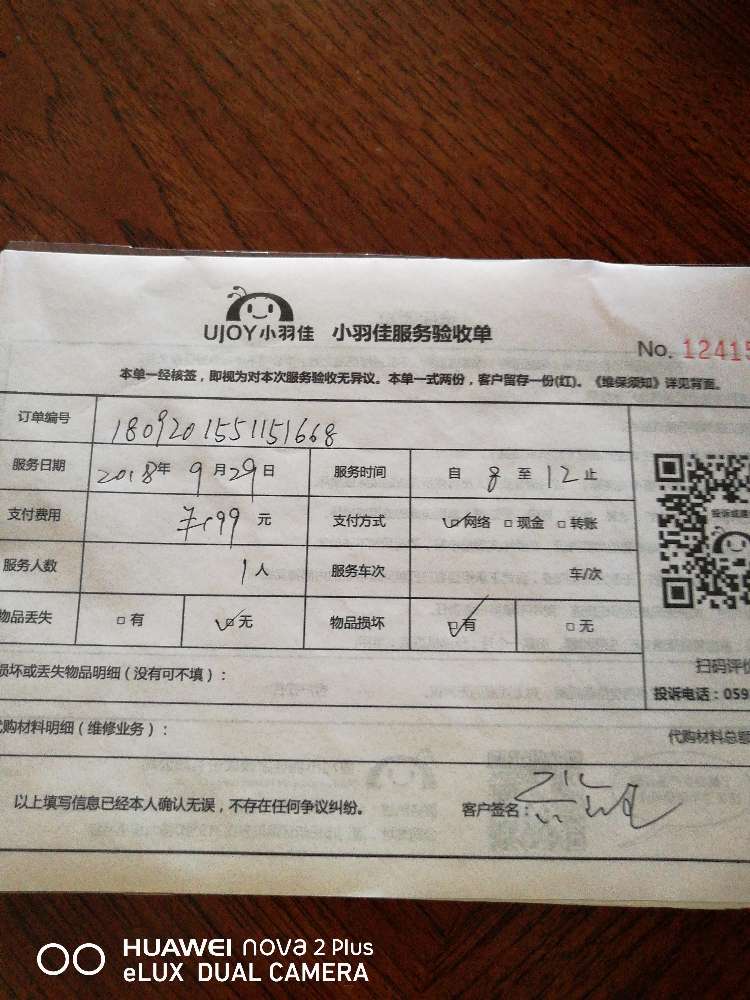 UJOY小羽佳 小羽佳服务验收单
No. 12415
本单一经核签，即视为对本次服务验收无异议。本单一式两份，客户留存一份(红)。《维保须知》详见背面。
订单编号 1809201551151668
服务日期 2018年 9月29日 服务时间 自 8 至 12 止
支付费用 199 元 支付方式 ☑网络 □现金 □转账
服务人数 1人 服务车次 车/次
物品丢失 □有 ☑无 物品损坏 ☑有 □无
损坏或丢失物品明细（没有可不填）：
扫码评价
投诉电话：059
代购材料明细（维修业务）： 代购材料总额
以上填写信息已经本人确认无误，不存在任何争议纠纷。 客户签名：
HUAWEI nova 2 Plus
eLUX DUAL CAMERA